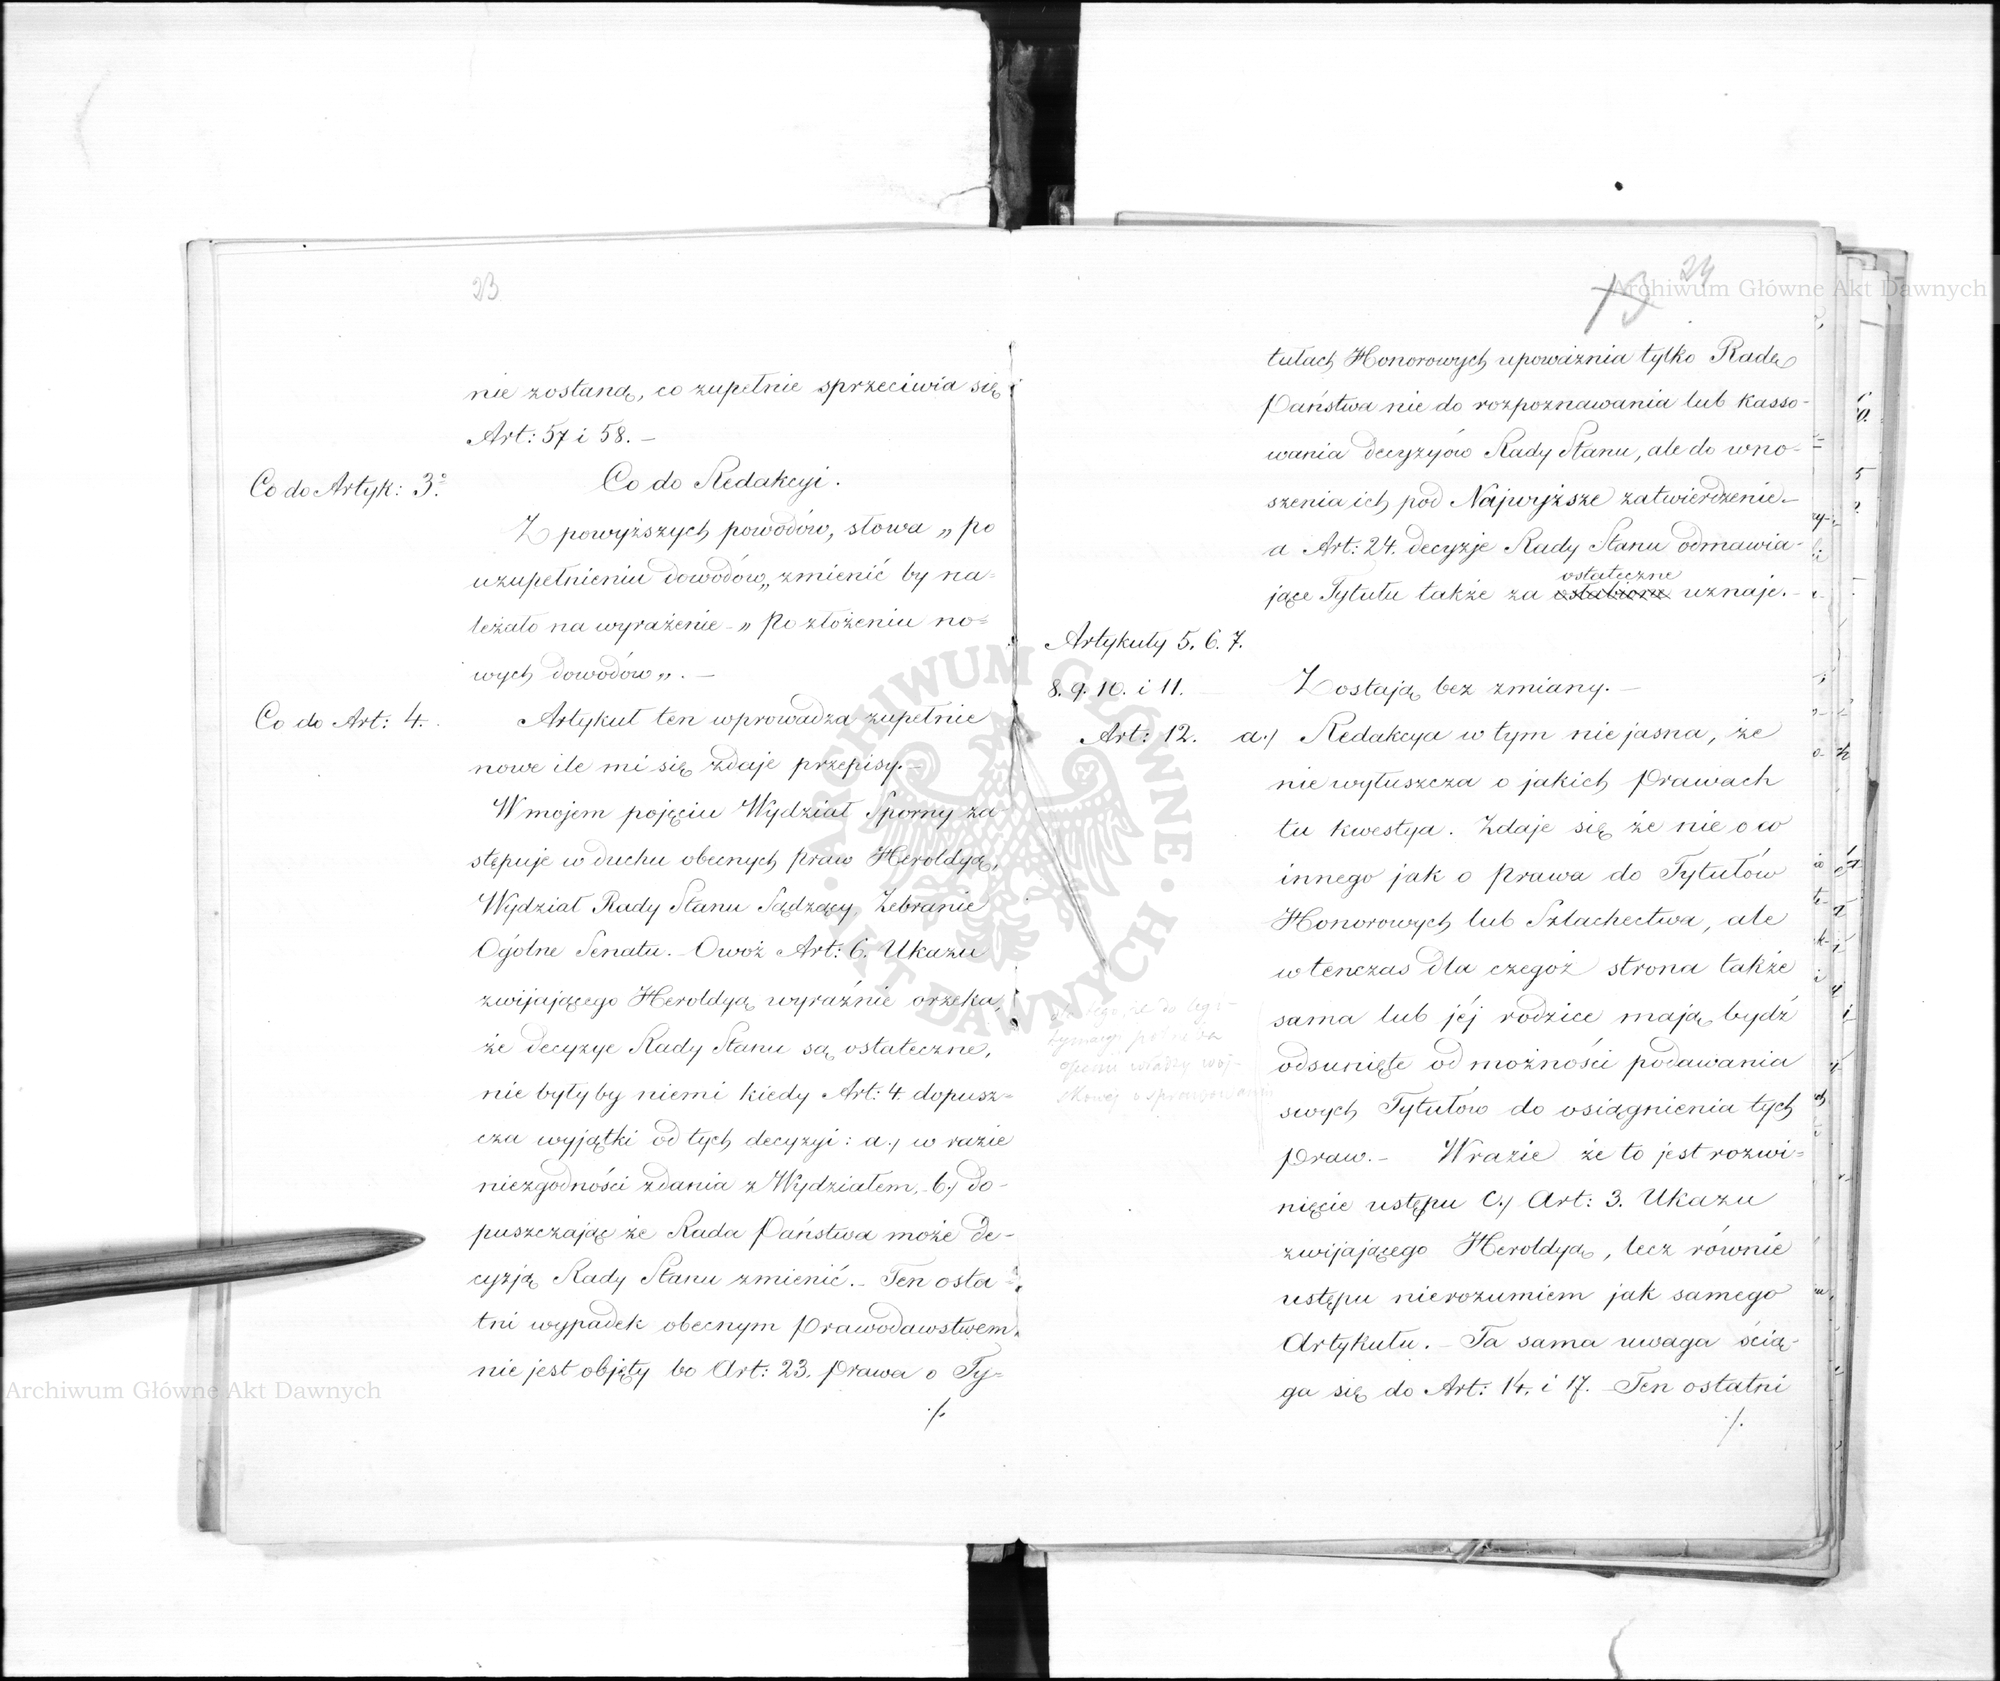 23
nie zostaną, co zupełnie sprzeciwia się
Art: 57 i 58. –
Co do Artyk: 3º.
Co do Redakcyi.
Z powyższych powodów, słowa „po
uzupełnieniu dowodów„ zmienić by na=
leżało na wyrażenie – „Po złożeniu no=
wych dowodów„. –
Co do Art: 4.
Artykuł ten wprowadza zupełnie
nowe ile mi się zdaje przepisy. –
W mojem pojęciu Wydział Sporny za-
stępuje w duchu obecnych praw Heroldyą,
Wydział Rady Stanu Sądzący, Zebranie
Ogólne Senatu. – Owoż Art: 6. Ukazu
zwijającego Heroldyą wyraźnie orzeka,
że decyzye Rady Stanu są ostateczne,
nie byłyby niemi kiedy Art: 4. dopusz=
cza wyjątki od tych decyzyi: a.) w razie
niezgodności zdania z Wydziałem, – b.) do-
puszczając że Rada Państwa może de-
cyzją Rady Stanu zmienić. – Ten osta=
tni wypadek obecnym Prawodawstwem
nie jest objęty bo Art: 23. Prawa o Ty=
./.
24
13
tułach Honorowych upoważnia tylko Radę
Państwa nie do rozpoznawania lub kasso-
wania decyzyów Rady Stanu, ale do wno-
szenia ich pod Najwyższe zatwierdzenie –
a Art: 24. decyzje Rady Stanu odmawia-
ostateczne
jące Tytułu także za uznaje. –
Artykuły 5. 6. 7.
8. 9. 10. i 11. Zostają bez zmiany. –
Art: 12. a.) Redakcya w tym nie jasna, że
nie wyłuszcza o jakich Prawach
tu kwestya. Zdaje się że nie o co
innego jak o Prawa do Tytułów
Honorowych lub Szlachectwa, ale
w tenczas dla czegoż strona także
sama lub jéj rodzice mają bydź
odsunięte od możności podawania
swych Tytułów do osiągnienia tych
Praw. – W razie że to jest rozwi=
nięcie ustępu C.) Art: 3. Ukazu
zwijającego Heroldyą, lecz równie
ustępu nierozumiem jak samego
Artykułu. – Ta sama uwaga ścią-
ga się do Art: 14. i 17. – Ten ostatni
./.
Archiwum Główne Akt Dawnych
Archiwum Główne Akt Dawnych
ARCHIWUM GŁÓWNE AKT DAWNYCH